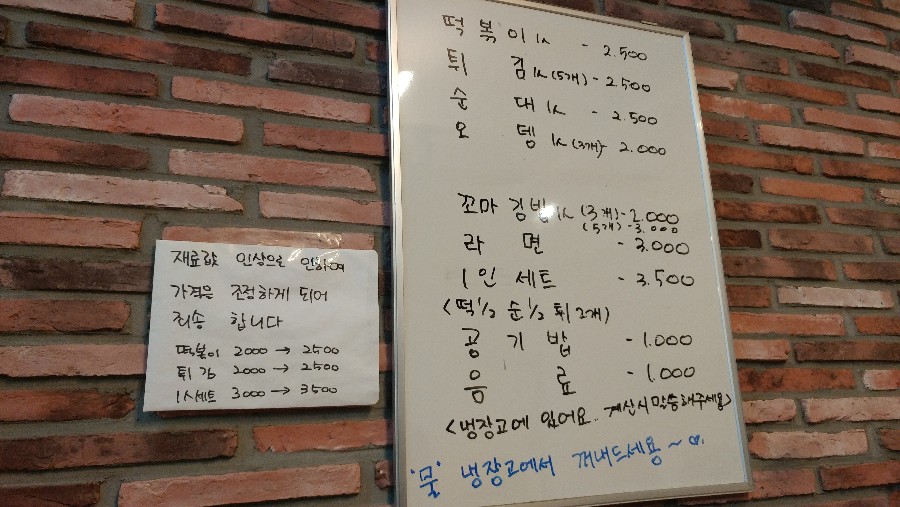 재료값 인상으로 인하여
가격을 조정하게 되어
죄송 합니다
떡볶이 2000 → 2500
튀김 2000 → 2500
1人세트 3000 → 3500
떡볶이 1人 - 2.500
튀김 1人 (5개) - 2500
순대 1人 - 2.500
오뎅 1人 (3개) - 2.000
꼬마김밥 1人 (3개) - 2.000
(5개) - 3.000
라면 - 3.000
1인세트 - 3.500
<떡½ 순½ 튀2개>
공기밥 - 1.000
음료 - 1.000
<냉장고에 있어요.. 계산시 말씀해주세용>
"물" 냉장고에서 꺼내드세용~